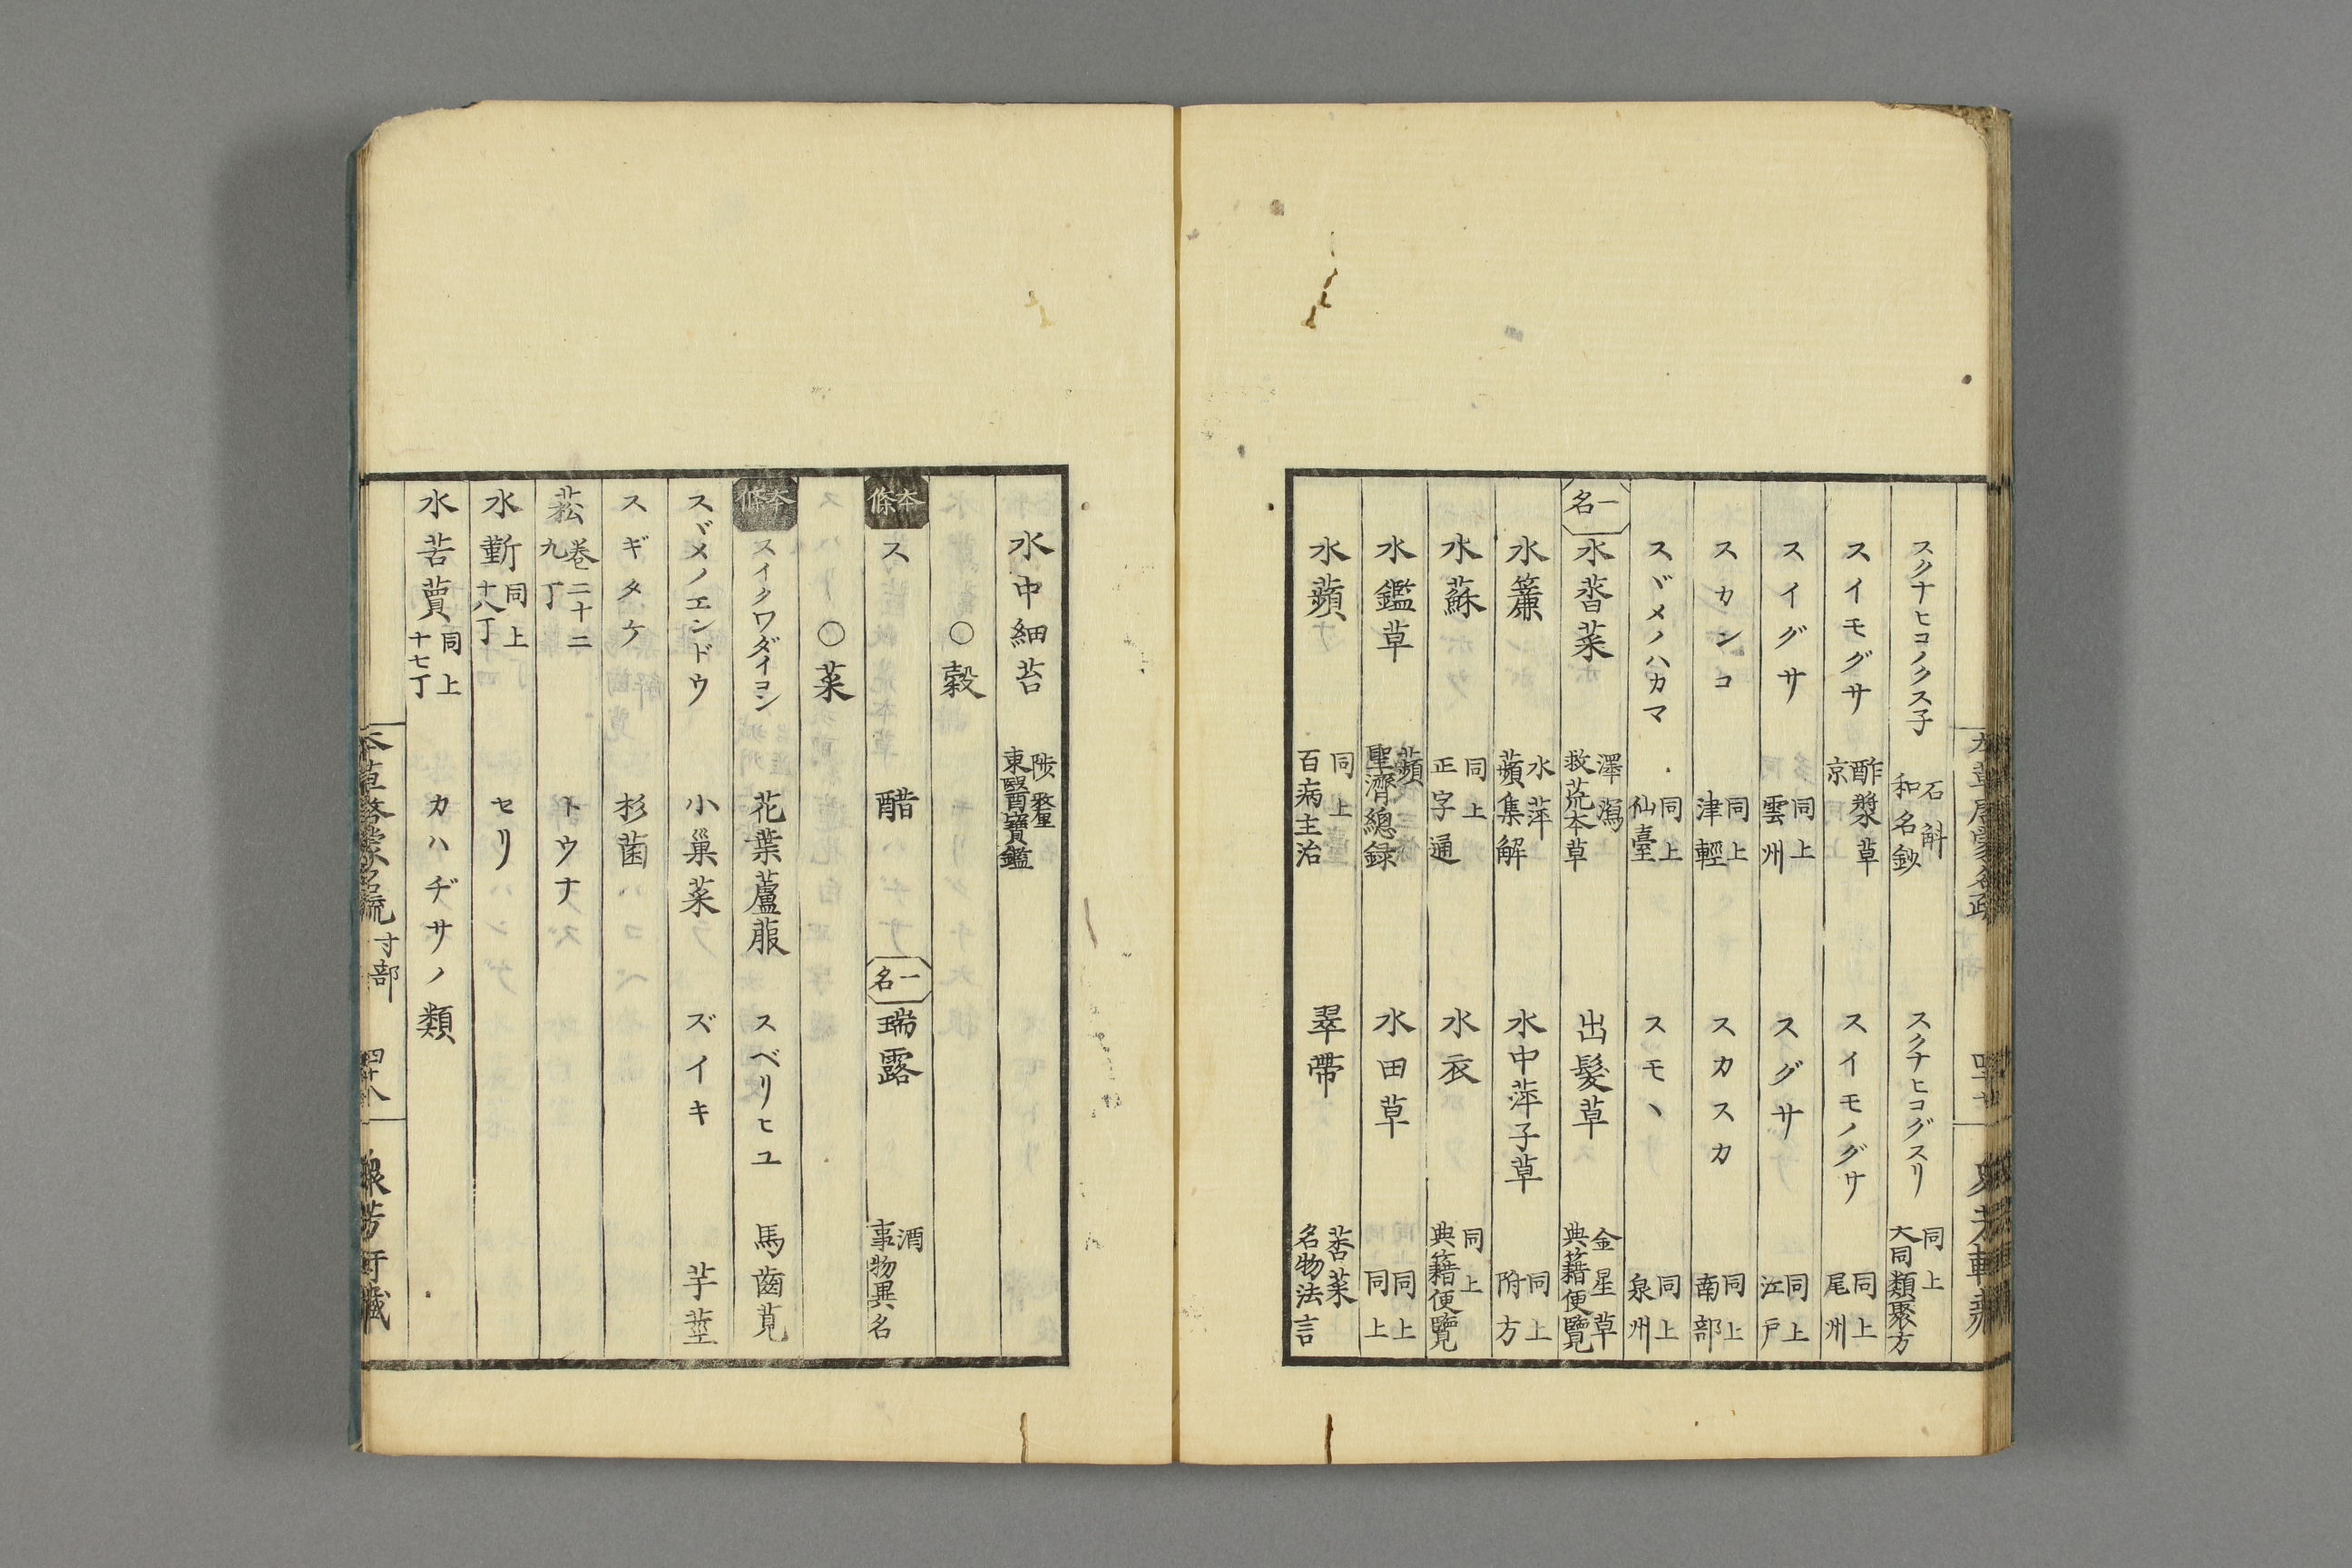 スクナヒコノクス子 石斛 和名鈔 スクナヒコグスリ 同上 大同類聚方
スイモグサ 酢漿草 京 スイモノグサ 同上 尾州
スイグサ 同上 雲州 スグサ 同上 江戸
スカンコ 同上 津輕 スカスカ 同上 南部
スヾメノハカマ 同上 仙臺 スモヽ 同上 泉州
一名 水莕菜 澤瀉 救荒本草 出髮草 金星草 典籍便覽
水簾 水萍 蘋集解 水中萍子草 同上 附方
水蘇 同上 正字通 水衣 同上 典籍便覽
水鑑草 蘋 聖濟總録 水田草 同上 同上
水蘋 同上 百病主治 翠帶 莕菜 名物法言
水中細苔 陟釐 東醫寶鑑
○穀
本條 ス 醋 一名 瑞露 酒 事物異名
○菜
本條 スイクワダイコン 花葉蘆菔 スベリヒユ 馬齒莧
スヾメノエンドウ 小巢菜 ズイキ 芋莖
スギタケ 杉菌
菘 卷二十二 九丁 トウナ
水斳 同上 十八丁 セリ
水苦蕒 同上 十七丁 カハヂサノ類
本草啓蒙名疏 寸部 四十八 衆芳軒藏